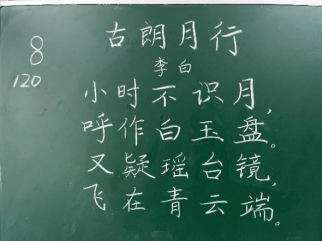 8
120
古朗月行
李白
小时不识月，
呼作白玉盘。
又疑瑶台镜，
飞在青云端。